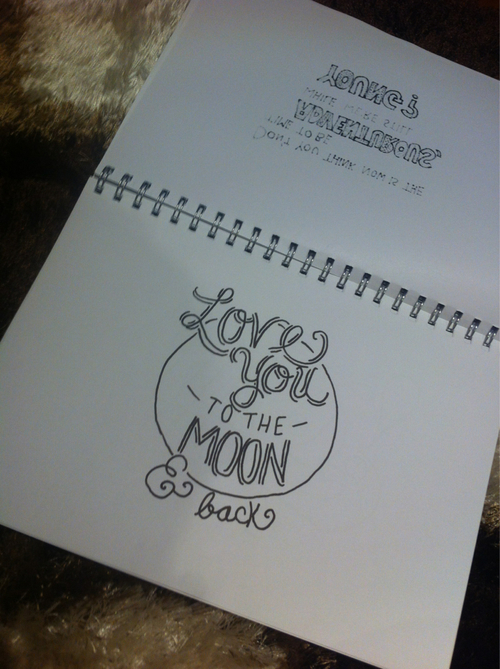 DONT YOU THINK NOW IS THE
TIME TO BE
ADVENTUROUS,
WHILE WERE STILL
YOUNG?
Love
You
- TO THE -
MOON
&
back